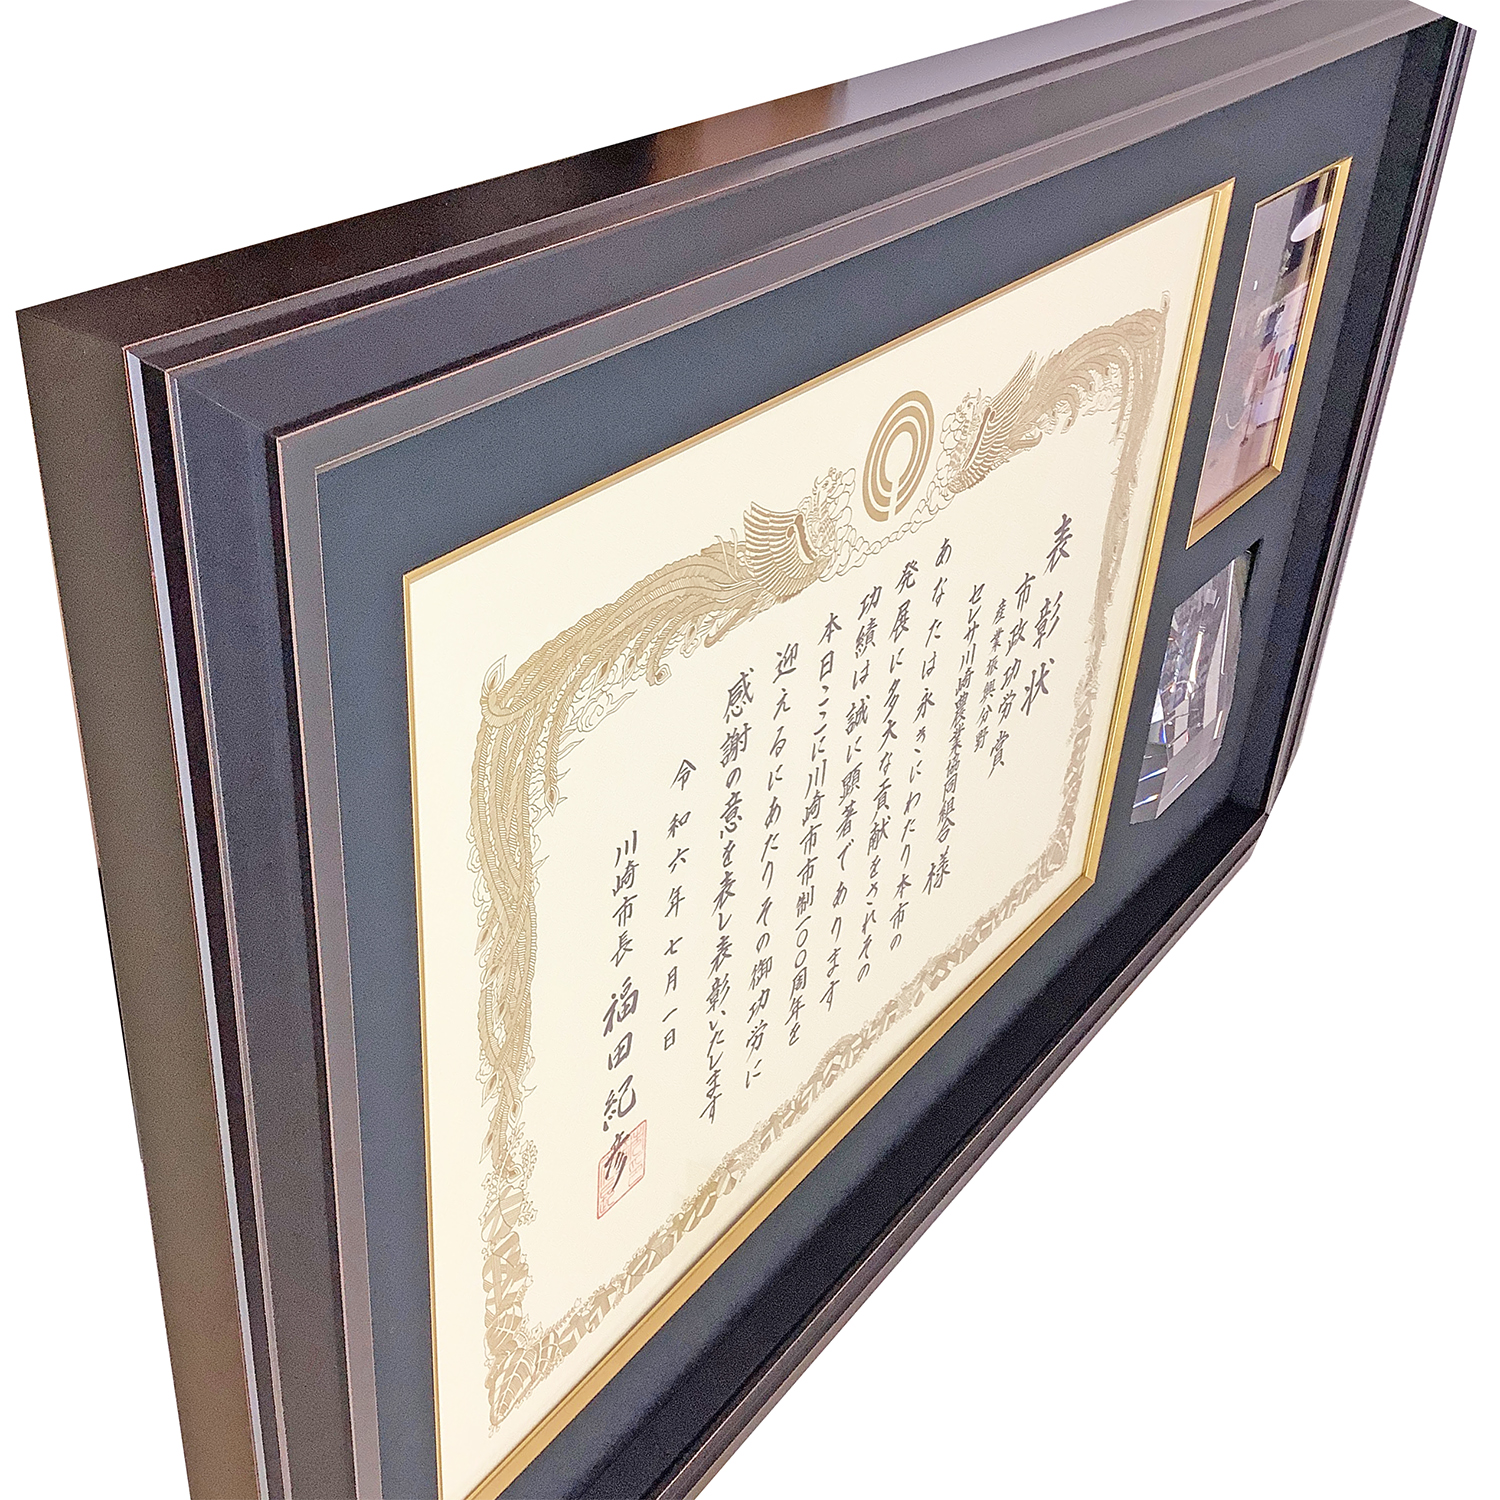 表彰状
市政功労賞
産業振興分野
セレサ川崎農業協同組合 様
あなたは永きにわたり本市の
発展に多大な貢献をされその
功績は誠に顕著であります
本日ここに川崎市市制一〇〇周年を
迎えるにあたりその御功労に
感謝の意を表し表彰いたします
令和六年七月一日
川崎市長 福田紀彦